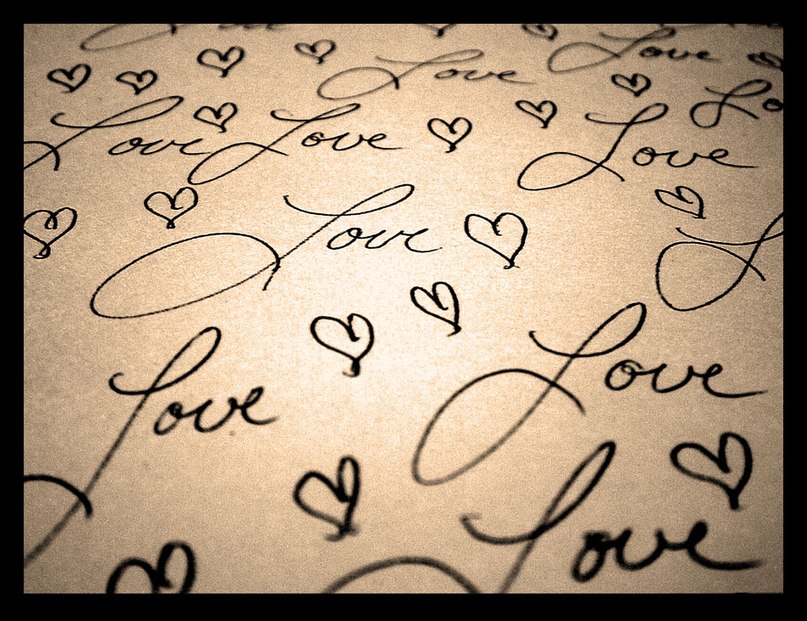 Love
Love
Love Love Love
Lo
Love
Love
Love
Love